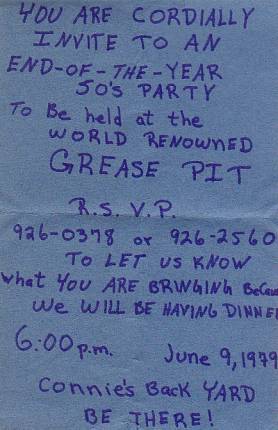 YOU ARE CORDIALLY
INVITE TO AN
END-OF-THE-YEAR
50's PARTY
To Be held at the
WORLD RENOWNED
GREASE PIT
R.S.V.P.
926-0378 or 926-2560
TO LET US KNOW
what YOU ARE BRINGING Becau
We WILL BE HAVING DINNE
6:00 p.m. June 9, 1979
Connie's Back YARD
BE THERE!